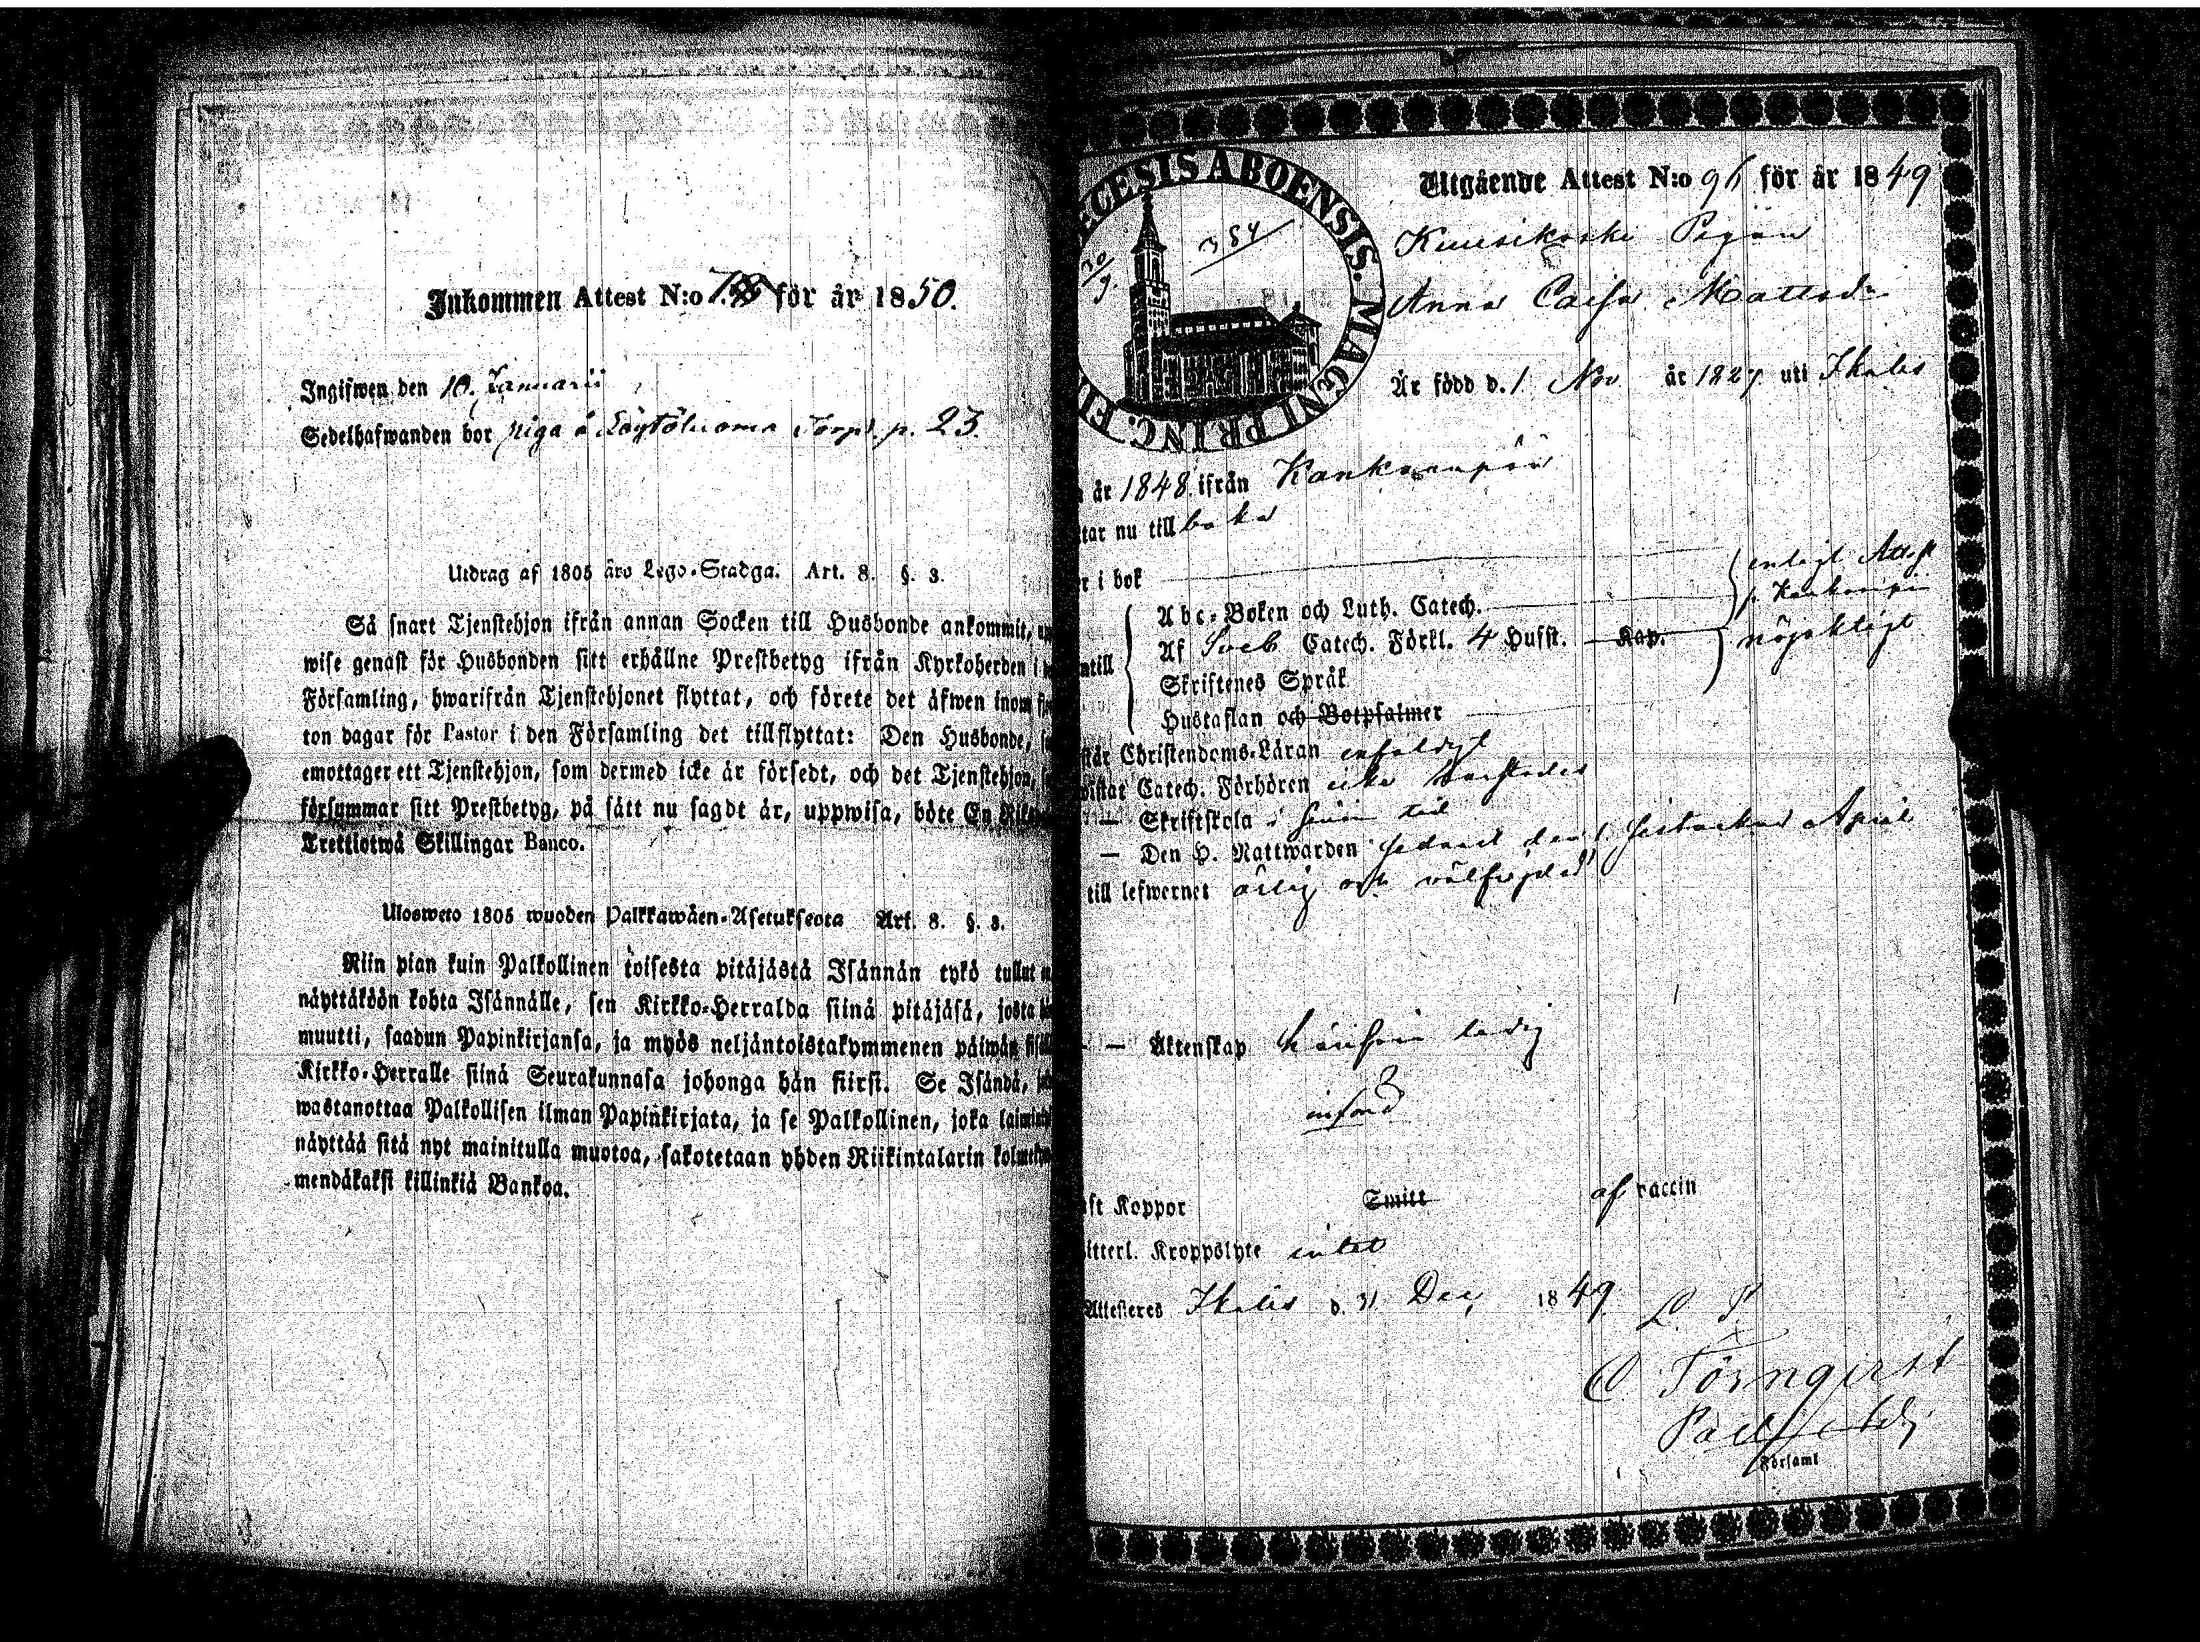 Inkommen Attest N:o för år 1850.
Ingifwen den 10. Januarii
Sedelhafwanden bor piga å Torp. p. 23.
Utdrag af 1805 års Lego-Stadga. Art. 8. §. 3.
Så snart Tjenstehjon ifrån annan Socken till Husbonde ankommit,
wise genast för Husbonden sitt erhållne Prestbetyg ifrån Kyrkoherden i
Församling, hwarifrån Tjenstehjonet flyttat, och förete det äfwen inom
ton dagar för Pastor i den Församling det tillflyttat: Den Husbonde,
emottager ett Tjenstehjon, som dermed icke är försedt, och det Tjenstehjon,
försummar sitt Prestbetyg, på sätt nu sagdt är, uppwisa, böte En
Trettiotwå Skillingar Banco.
Ulosweto 1805 wuoden Palkkawäen-Asetuksesta Art. 8. §. 3.
Niin pian kuin Palkollinen toisesta pitäjästä Isännän tykö tullut
näyttäköön kohta Isännälle, sen Kirkko-Herralda siinä pitäjäsä, josta
muutti, saadun Papinkirjansa, ja myös neljäntoistakymmenen päiwän
Kirkko-Herralle siinä Seurakunnasa johonga hän siirsi. Se Isändä,
wastanottaa Palkollisen ilman Papinkirjata, ja se Palkollinen, joka
näyttää sitä nyt mainitulla muotoa, sakotetaan yhden Riikintalarin
mendäkaksi killinkiä Bankoa.
CESIS ABOENSIS. MAGNI PRINC. FI
354
Utgående Attest N:o 96 för år 1849
Kuusikoski Pigan
Anna Caisa Mattsdr
Är född d. 1 Nov år 1827 uti Ikalis
år 1848 ifrån Kankaanpää
tar nu till baka
r i bok
Abc-Boken och Luth. Catech.
enligt Att.
fr. Kankaanpää
Af Sveb Catech. Förkl. 4 Hufst. Kap.
nöjaktigt
ntill
Skriftenes Språk
Hustaflan och Botpsalmer
står Christendoms-Läran enfaldigt
wistat Catech. Förhören
— Skriftskola i sinom tid
— Den H. Nattwarden sedan den April
till lefwernet ärlig och välfrejdad
— — Äktenskap härifrån ledig
införd
ft Koppor Smitt af vaccin
itterl. Kroppslyte intet
Attesteres Ikalis d. 31 Dec 1849
C Törnqvist
Församl